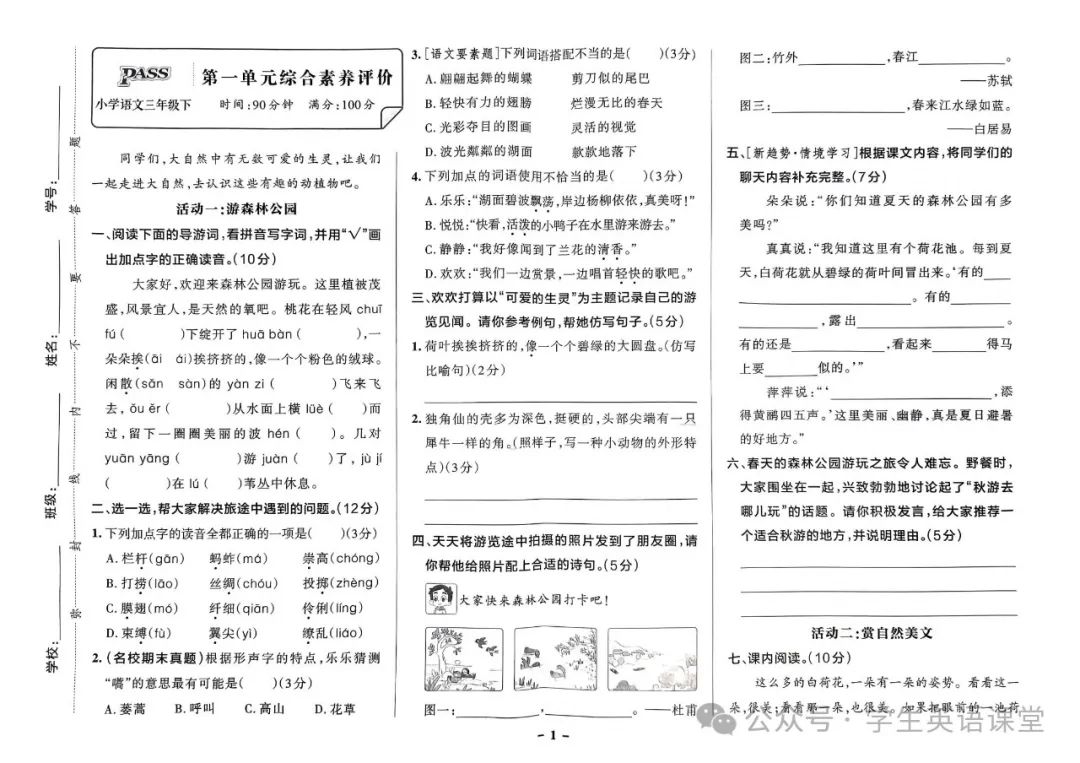 PASS
第一单元综合素养评价
小学语文三年级下 时间:90分钟 满分:100分
学号:
姓名:
班级:
学校:
题
答
要
不
内
线
封
弥
同学们,大自然中有无数可爱的生灵,让我们
一起走进大自然,去认识这些有趣的动植物吧。
活动一:游森林公园
一、阅读下面的导游词,看拼音写字词,并用“√”画
出加点字的正确读音。(10分)
大家好,欢迎来森林公园游玩。这里植被茂
盛,风景宜人,是天然的氧吧。桃花在轻风 chuī
fú ( )下绽开了 huā bàn ( ),一
朵朵挨(āi ái)挨挤挤的,像一个个粉色的绒球。
闲散(sǎn sàn)的 yàn zi ( )飞来飞
去, ǒu ěr ( )从水面上横 lüè ( )而
过,留下一圈圈美丽的波 hén ( )。几对
yuān yāng ( )游 juàn ( )了, jù jí
( )在 lú ( )苇丛中休息。
二、选一选,帮大家解决旅途中遇到的问题。(12分)
1. 下列加点字的读音全都正确的一项是( )(3分)
A. 栏杆(gān) 蚂蚱(má) 崇高(chóng)
B. 打捞(lāo) 丝绸(chóu) 投掷(zhèng)
C. 膜翅(mó) 纤细(qiān) 伶俐(líng)
D. 束缚(fù) 翼尖(yì) 缭乱(liáo)
2. (名校期末真题)根据形声字的特点,乐乐猜测
“嚆”的意思最有可能是( )(3分)
A. 蒌蒿 B. 呼叫 C. 高山 D. 花草
3. [语文要素题]下列词语搭配不当的是( )(3分)
A. 翩翩起舞的蝴蝶 剪刀似的尾巴
B. 轻快有力的翅膀 烂漫无比的春天
C. 光彩夺目的图画 灵活的视觉
D. 波光粼粼的湖面 款款地落下
4. 下列加点的词语使用不恰当的是( )(3分)
A. 乐乐:“湖面碧波飘荡,岸边杨柳依依,真美呀!”
B. 悦悦:“快看,活泼的小鸭子在水里游来游去。”
C. 静静:“我好像闻到了兰花的清香。”
D. 欢欢:“我们一边赏景,一边唱首轻快的歌吧。”
三、欢欢打算以“可爱的生灵”为主题记录自己的游
览见闻。请你参考例句,帮她仿写句子。(5分)
1. 荷叶挨挨挤挤的,像一个个碧绿的大圆盘。(仿写
比喻句)(2分)
2. 独角仙的壳多为深色,挺硬的,头部尖端有一只
犀牛一样的角。(照样子,写一种小动物的外形特
点)(3分)
四、天天将游览途中拍摄的照片发到了朋友圈,请
你帮他给照片配上合适的诗句。(5分)
大家快来森林公园打卡吧!
图一: , 。——杜甫
图二:竹外 ,春江 。
——苏轼
图三: ,春来江水绿如蓝。
——白居易
五、[新趋势·情境学习]根据课文内容,将同学们的
聊天内容补充完整。(7分)
朵朵说:“你们知道夏天的森林公园有多
美吗?”
真真说:“我知道这里有个荷花池。每到夏
天,白荷花就从碧绿的荷叶间冒出来。‘有的
。有的
,露出 。
有的还是 ,看起来 得马
上要 似的。’”
萍萍说:“‘ ,添
得黄鹂四五声。’这里美丽、幽静,真是夏日避暑
的好地方。”
六、春天的森林公园游玩之旅令人难忘。野餐时,
大家围坐在一起,兴致勃勃地讨论起了“秋游去
哪儿玩”的话题。请你积极发言,给大家推荐一
个适合秋游的地方,并说明理由。(5分)
活动二:赏自然美文
七、课内阅读。(10分)
这么多的白荷花,一朵有一朵的姿势。看看这一
朵,很美;看看那一朵,也很美。如果把眼前的一池荷
- 1 -
公众号·学生英语课堂